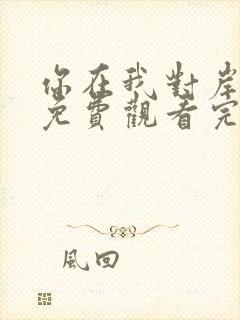 你在我對岸
免費觀看完
風回